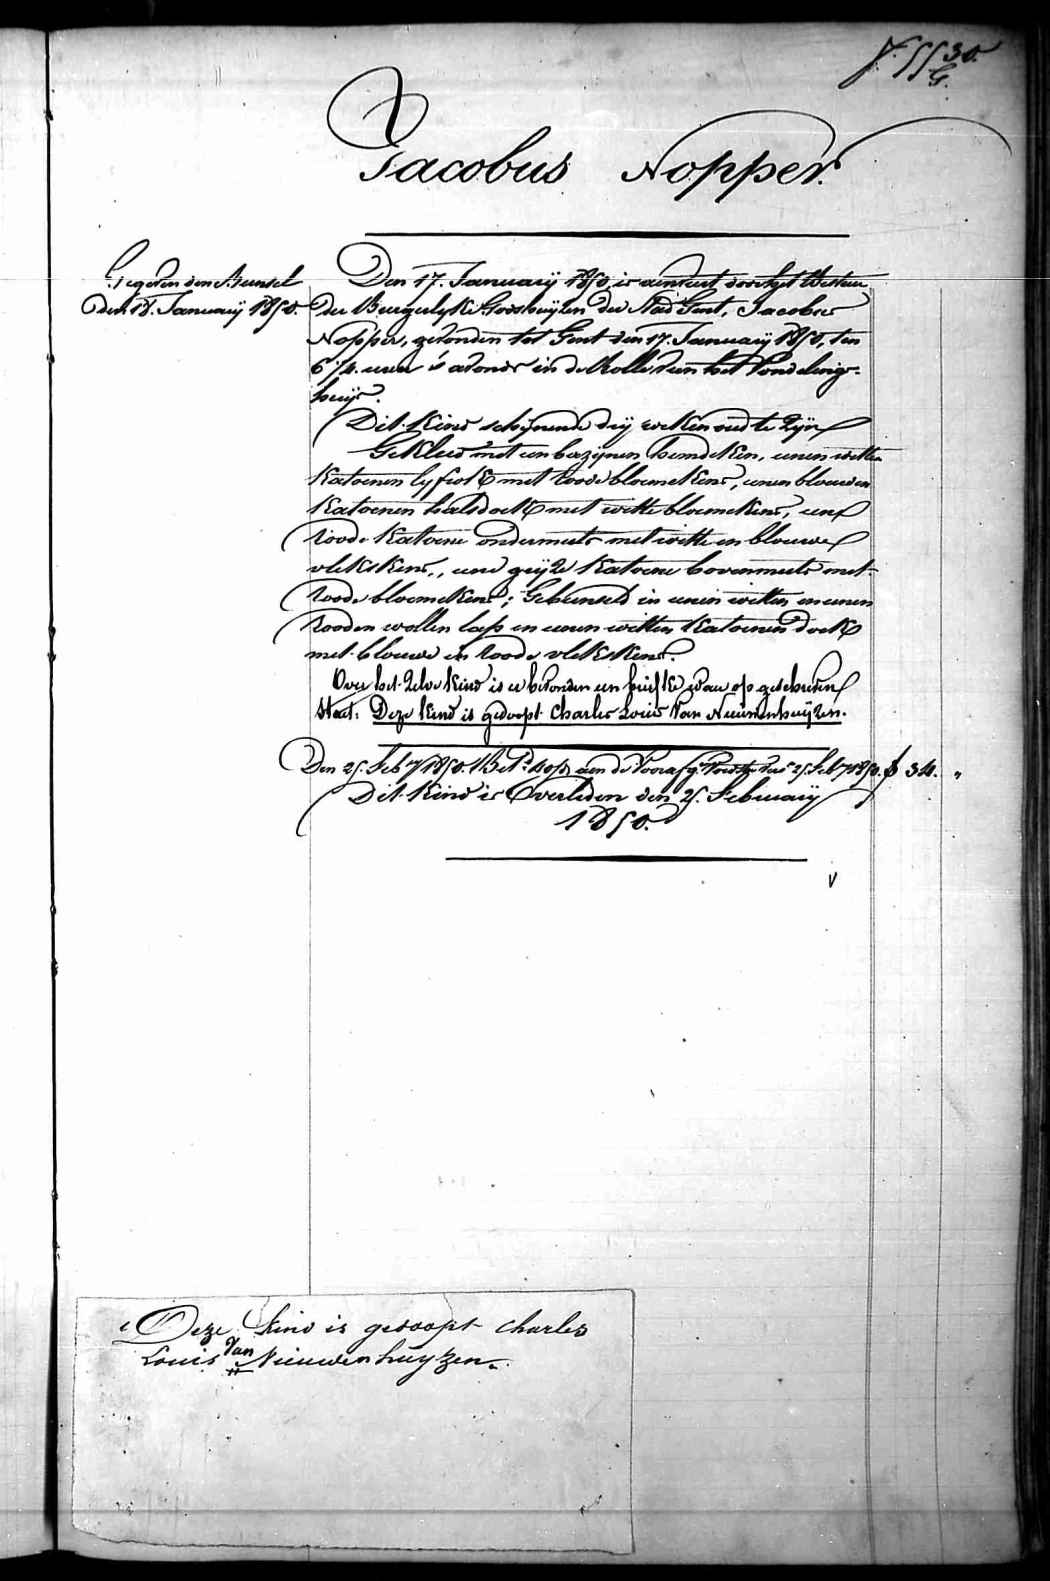 5530.
G.
Jacobus Nopper.
Gegeven den Beursel
den 18. January 1850.
Den 17. January 1850, is aenveert door het Bestuer
der Burgerlyke Godshuyzen der Stad Gent, Jacobus
Nopper, gevonden tot Gent den 17. January 1850, ten
6 1/4. uren 's avonds in de Rolle van het Vondelings-
huys.
Dit Kind schynende dry weken oud te zyn
Gekleed met een bazynen hemdeken, eenen witten
Katoenen lyfrok met roode bloemekens, eenen blouwen
Katoenen halsdoek met witte bloemekens, een
roode Katoene ondermuts met witte en blouwe
vlekskens, eene gryze Katoene bovenmuts met
roode bloemekens; Gebunseld in eenen witten en eenen
rooden wollen lap en eenen witten Katoenen doek
met blouwe en roode vlekskens.
Over het zelve kind is er bevonden een briefke waer op geschreven
staet: Deze kind is gedoopt Charles Louis Van Nieuwenhuyzen.
Den 25. Feb.y 1850. Bet.d aen de Voorafg. 25. Feb.y 1850. 34. "
Dit Kind is Overleden den 25. February
1850.
Deze kind is gedoopt charles
Louis Van Nieuwenhuyzen.